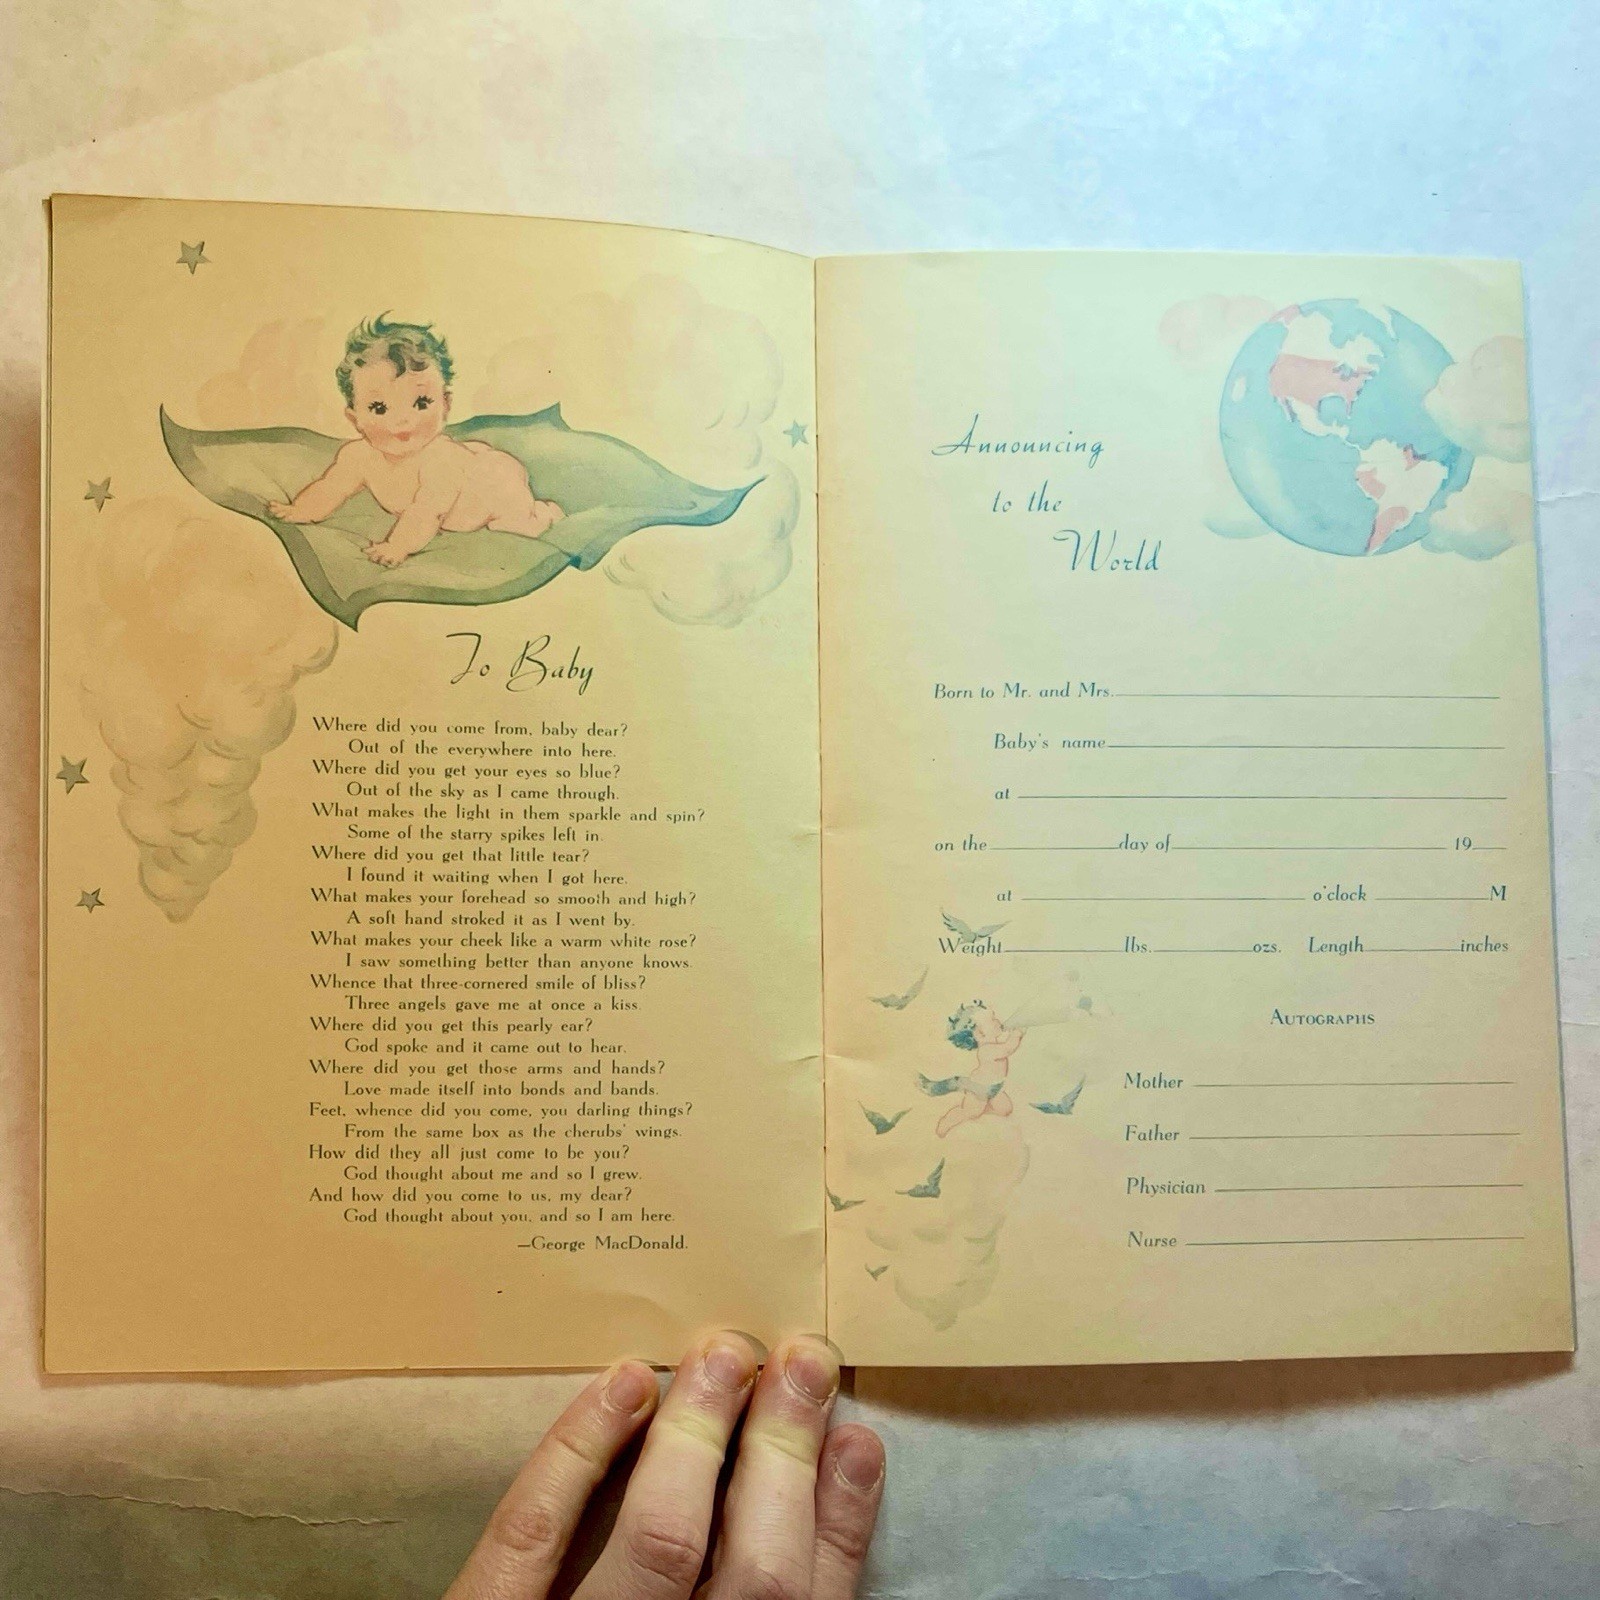 To Baby
Where did you come from, baby dear?
Out of the everywhere into here.
Where did you get your eyes so blue?
Out of the sky as I came through.
What makes the light in them sparkle and spin?
Some of the starry spikes left in.
Where did you get that little tear?
I found it waiting when I got here.
What makes your forehead so smooth and high?
A soft hand stroked it as I went by.
What makes your cheek like a warm white rose?
I saw something better than anyone knows.
Whence that three-cornered smile of bliss?
Three angels gave me at once a kiss.
Where did you get this pearly ear?
God spoke and it came out to hear.
Where did you get those arms and hands?
Love made itself into bonds and bands.
Feet, whence did you come, you darling things?
From the same box as the cherubs' wings.
How did they all just come to be you?
God thought about me and so I grew.
And how did you come to us, my dear?
God thought about you, and so I am here.
—George MacDonald.
Announcing
to the
World
Born to Mr. and Mrs.
Baby's name
at
on the day of 19
at o'clock M
Weight lbs. ozs. Length inches
AUTOGRAPHS
Mother
Father
Physician
Nurse